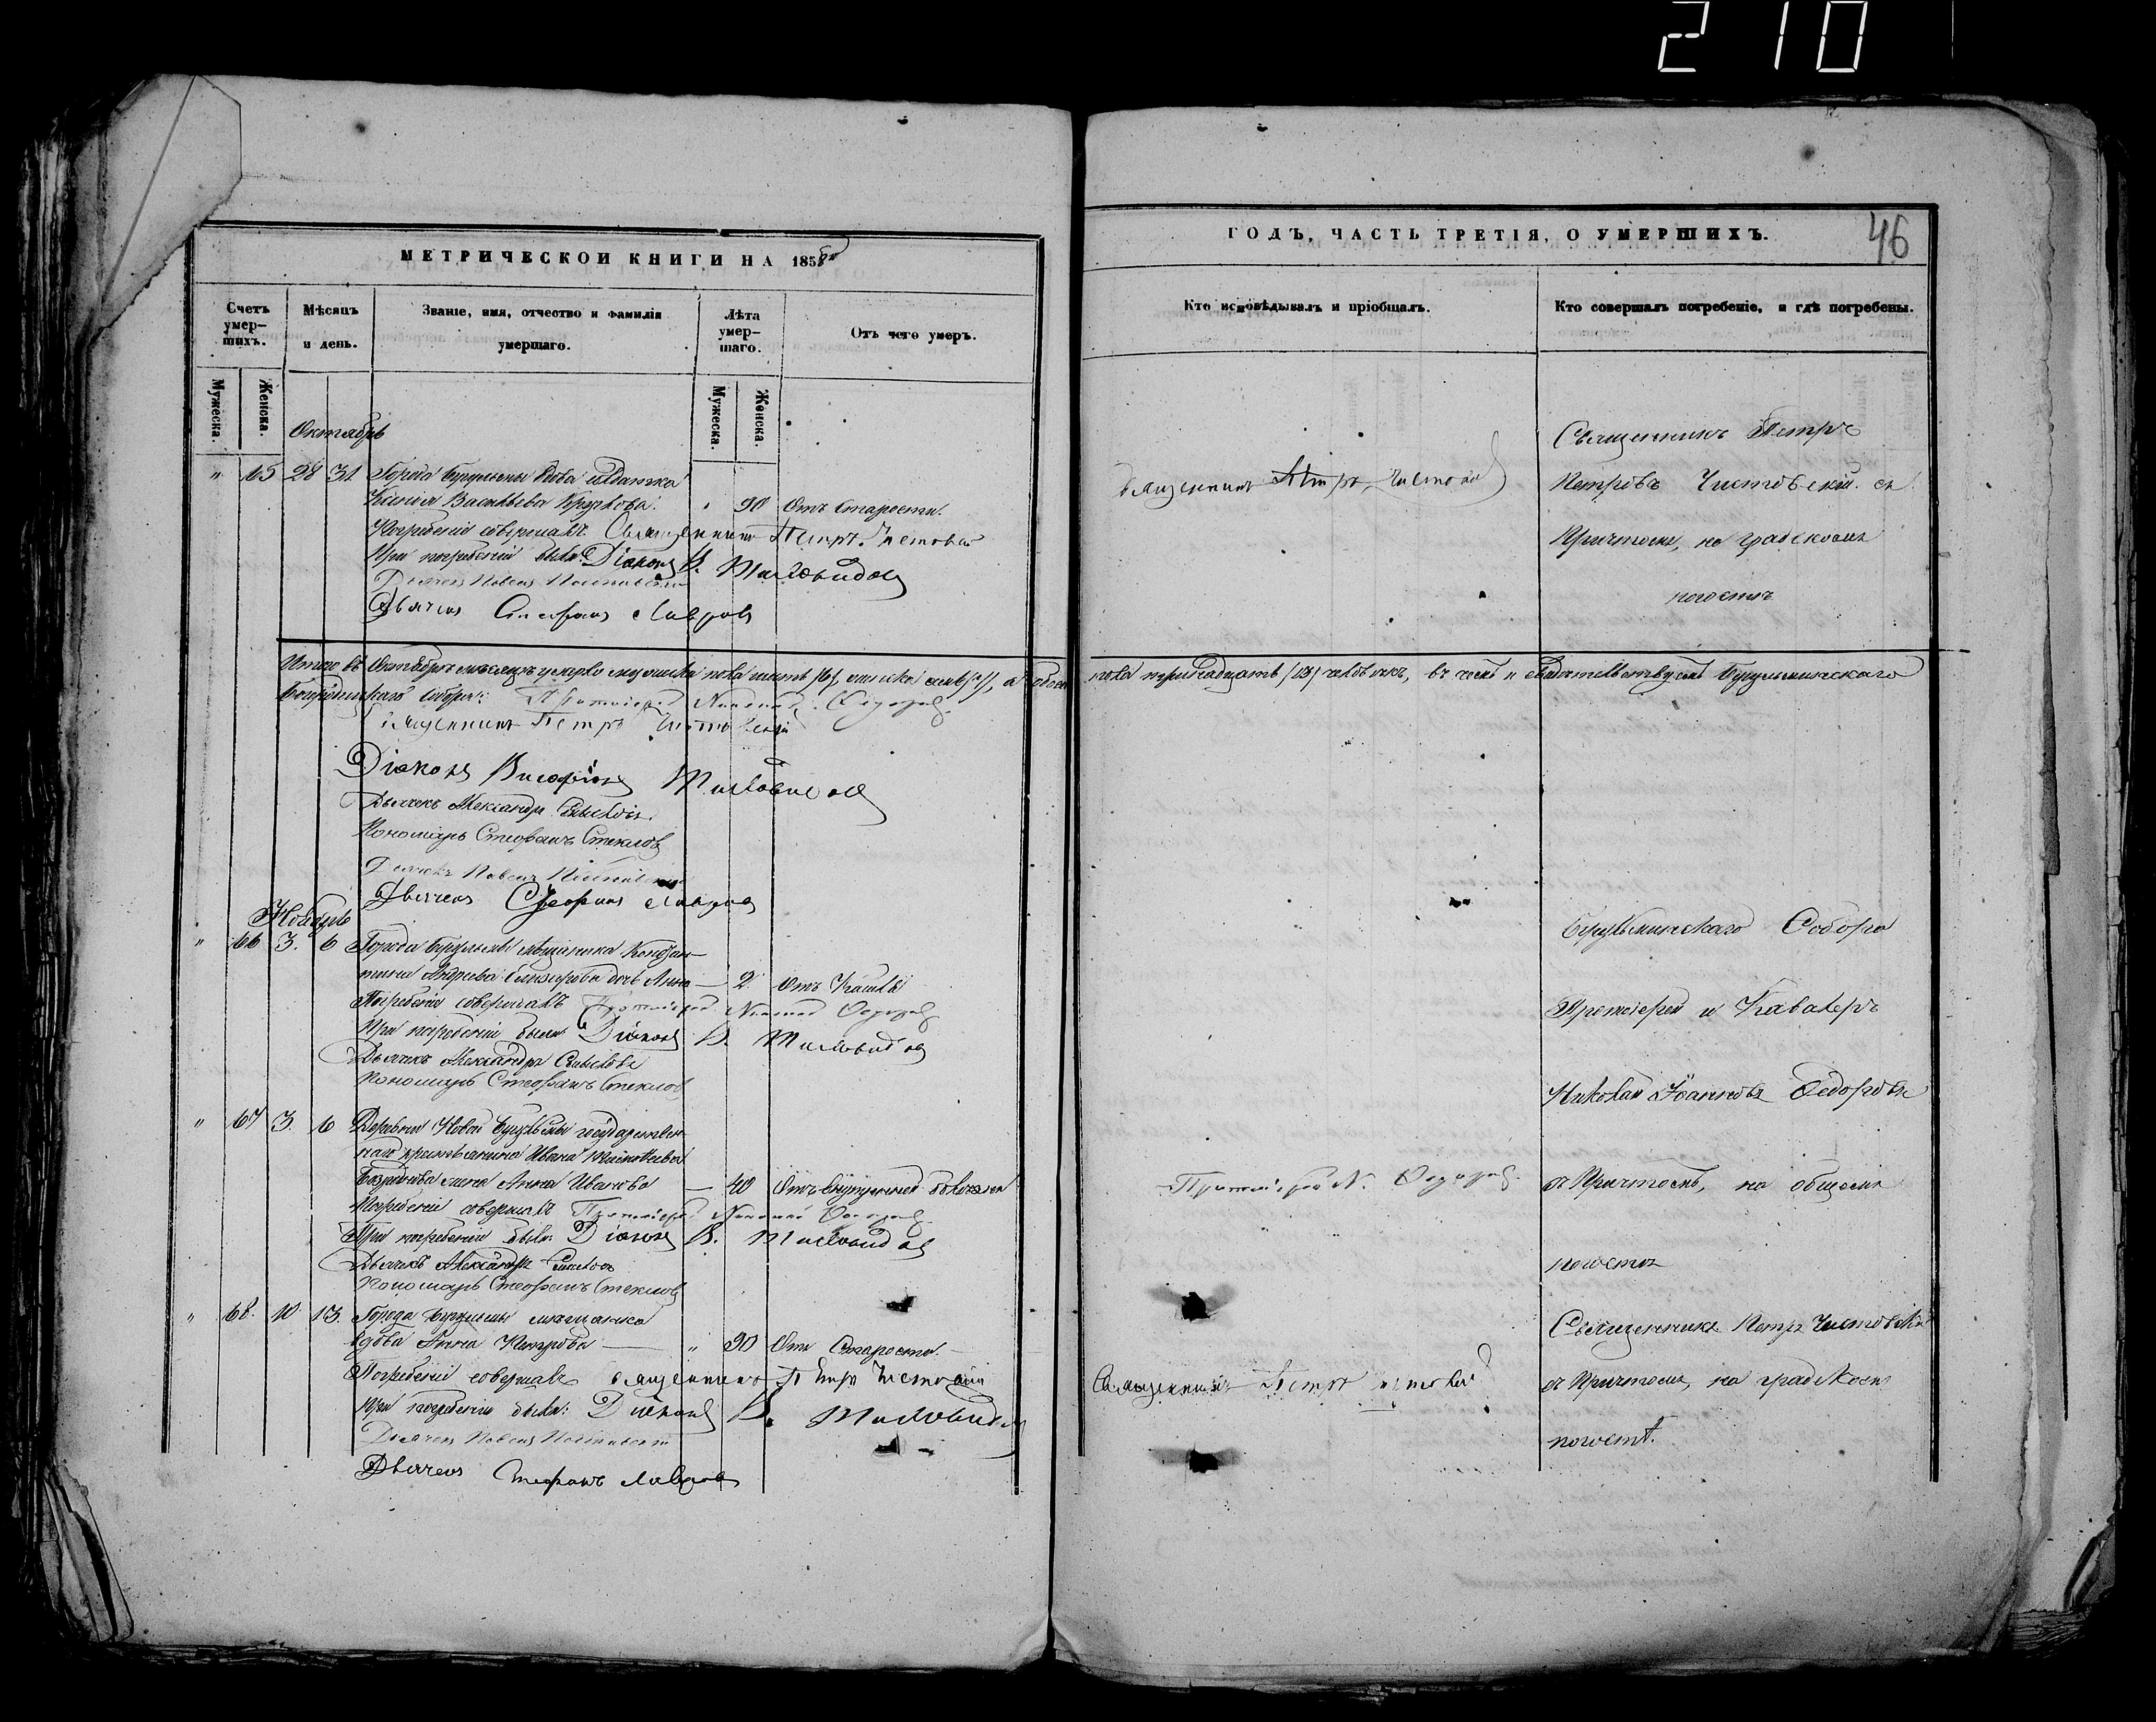 210
МЕТРИЧЕСКОЙ КНИГИ НА 1858й
ГОДЪ, ЧАСТЬ ТРЕТІЯ, О УМЕРШИХЪ.
46
Счетъ умер-шихъ.
Мѣсяцъ и день.
Званіе, имя, отчество и фамилія умершаго.
Лѣта умер-шаго.
Отъ чего умеръ.
Кто исповѣдывалъ и пріобщалъ.
Кто совершалъ погребеніе, и гдѣ погребены.
Мужеска.
Женска.
Мужеска.
Женска.
Октябрь
" 65 28 31 Города Бугульмы вдова солдатка
Васильева " 90 Отъ старости.
Погребеніе совершалъ Священникъ Петръ Чистовскій
При погребеніи были Діаконъ В. Тиховидовъ
Дьячекъ Павелъ
Дьячекъ Стефанъ Лавровъ
Священникъ Петръ Чистовскій
Священникъ Петръ
Петровъ Чистовскій съ
Причтомъ, на градскомъ
погостѣ
Итого въ Октябрѣ мѣсяцѣ умерло мужеска пола шесть /6/, женска семь /7/, а обоего пола тринадцать /13/ человѣкъ, въ чемъ и свидѣтельствуемъ Бугульминскаго
Собора: Протоіерей Николай Федоровъ.
Священникъ Петръ Чистовскій
Діаконъ Тиховидовъ
Дьячекъ Александръ
Пономарь Стефанъ Стекловъ
Дьячекъ Павелъ
Дьячекъ Стефанъ Лавровъ
Ноябрь
" 66 3. 6 Города Бугульмы мѣщанина Констан-
тина Андреева дочь Анна — 2 Отъ Кашля
Погребеніе совершалъ Протоіерей Николай Федоровъ
При погребеніи были Діаконъ В. Тиховидовъ
Дьячекъ Александръ
Пономарь Стефанъ Стекловъ
Бугульминскаго Собора
Протоіерей и Кавалеръ
Николай Іоанновъ Федоровъ
съ Причтомъ, на общемъ
погостѣ
" 67 3. 6 Деревни Новой Бугульмы государствен-
наго крестьянина Ивана
жена Анна Иванова — 40 Отъ внутренней болѣзни
Погребеніе совершалъ Протоіерей Николай Федоровъ
При погребеніи были: Діаконъ В. Тиховидовъ
Дьячекъ Александръ
Пономарь Стефанъ Стекловъ
Протоіерей Н. Федоровъ.
" 68. 10 13. Города Бугульмы мѣщанка
вдова Анна Петрова — " 90 Отъ Старости.
Погребеніе совершалъ Священникъ Петръ Чистовскій
При погребеніи были: Діаконъ В. Тиховидовъ
Дьячекъ Павелъ
Дьячекъ Стефанъ Лавровъ
Священникъ Петръ Чистовскій
Священникъ Петръ Чистовскій
съ Причтомъ, на градскомъ
погостѣ.